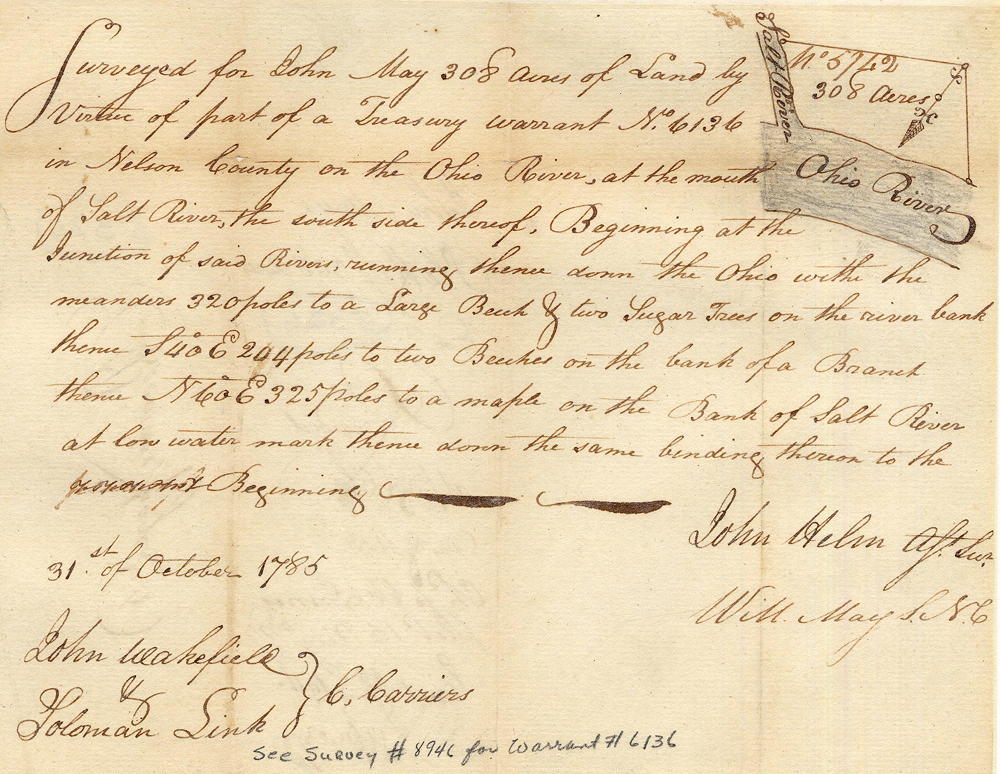 Surveyed for John May 308 Acres of Land by
Virtue of part of a Treasury warrant No. 6136
in Nelson County on the Ohio River, at the mouth
of Salt River, the south side thereof, Beginning at the
Junction of said Rivers, running thence down the Ohio withe the
meanders 320 poles to a Large Beech & two Sugar Trees on the river bank
thence S 40 E 244 poles to two Beeches on the bank of a Branch
thence N 60 E 325 poles to a maple on the Bank of Salt River
at low water mark thence down the same binding thereon to the
Beginning
31st of October 1785
John Helm Ast. Sur.
Will. May S. N. C
John Wakefield
&
Soloman Link
C. Carriers
See Survey # 8946 for Warrant # 6136
Salt River
No 5742
308 Acres
Ohio River